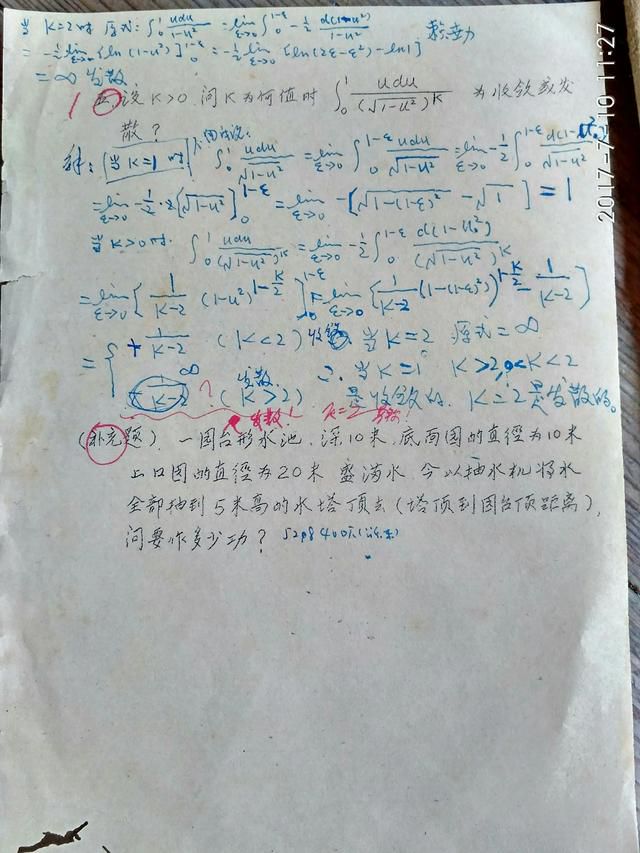 当K=2时 原式: ∫₀¹ udu/(1-u²) = lim(ε→0) ∫₀^(1-ε) -1/2 d(1-u²)/(1-u²)
= -1/2 lim(ε→0) [ln(1-u²)]₀^(1-ε) = -1/2 lim(ε→0) [ln(2ε-ε²)-ln1]
= ∞ 发散
五 设K>0 问K为何值时 ∫₀¹ udu/(√(1-u²))^K 为收敛或发
散?
解: 当K=1时 ∫₀¹ udu/√(1-u²) = lim(ε→0) ∫₀^(1-ε) udu/√(1-u²) = lim(ε→0) -1/2 ∫₀^(1-ε) d(1-u²)/√(1-u²)
= lim(ε→0) -1/2·2[√(1-u²)]₀^(1-ε) = lim(ε→0) -[√(1-(1-ε)²) - √1] = 1
当K>0时. ∫₀¹ udu/(√(1-u²))^K = lim(ε→0) -1/2 ∫₀^(1-ε) d(1-u²)/(√(1-u²))^K
= lim(ε→0) [1/(K-2) (1-u²)^(1-K/2)]₀^(1-ε) = lim(ε→0) [1/(K-2) (1-(1-ε)²)^(1-K/2) - 1/(K-2)]
= { + 1/(K-2) (K<2) 收敛 当K=2 原式=∞
∞ 发散 (K>2) ∴ 当K=1 K>2, 0<K<2
是收敛的. K=2是发散的。
发散! K=2 发散!
(补充题). 一园台形水池, 深10米, 底面园的直徑为10米
上口园的直徑为20米 盛满水 今以抽水机将水
全部抽到5米高的水塔顶去(塔顶到园台顶距离),
问要作多少功?
2017-7-10 11:27